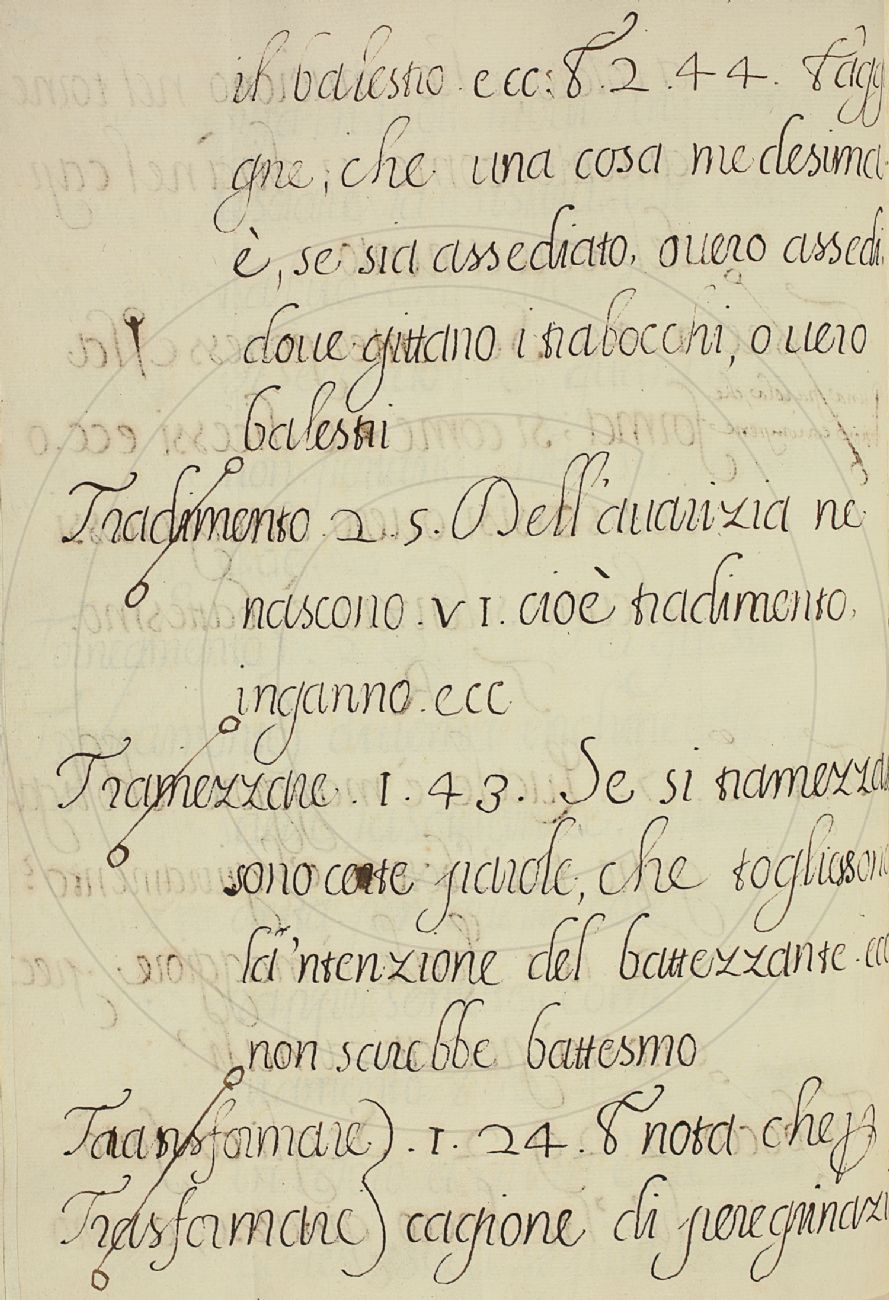 il balestro ecc: E. 2. 44. E agg
gne, che una cosa medesima
è, se sia assediato, ouero assedi
doue gittano i trabocchi, o uero
balestri
Tradimento. 2. 5. Dell'auarizia ne
nascono. VI. cioè tradimento,
inganno. ecc
Tramezzare. 1. 43. Se si tramezza
sono certe parole, che togliessono
la 'ntenzione del battezzante. ecc
non sarebbe battesmo
Transformare). 1. 24. E nota che p
Trasformare) cagione di peregrinazi